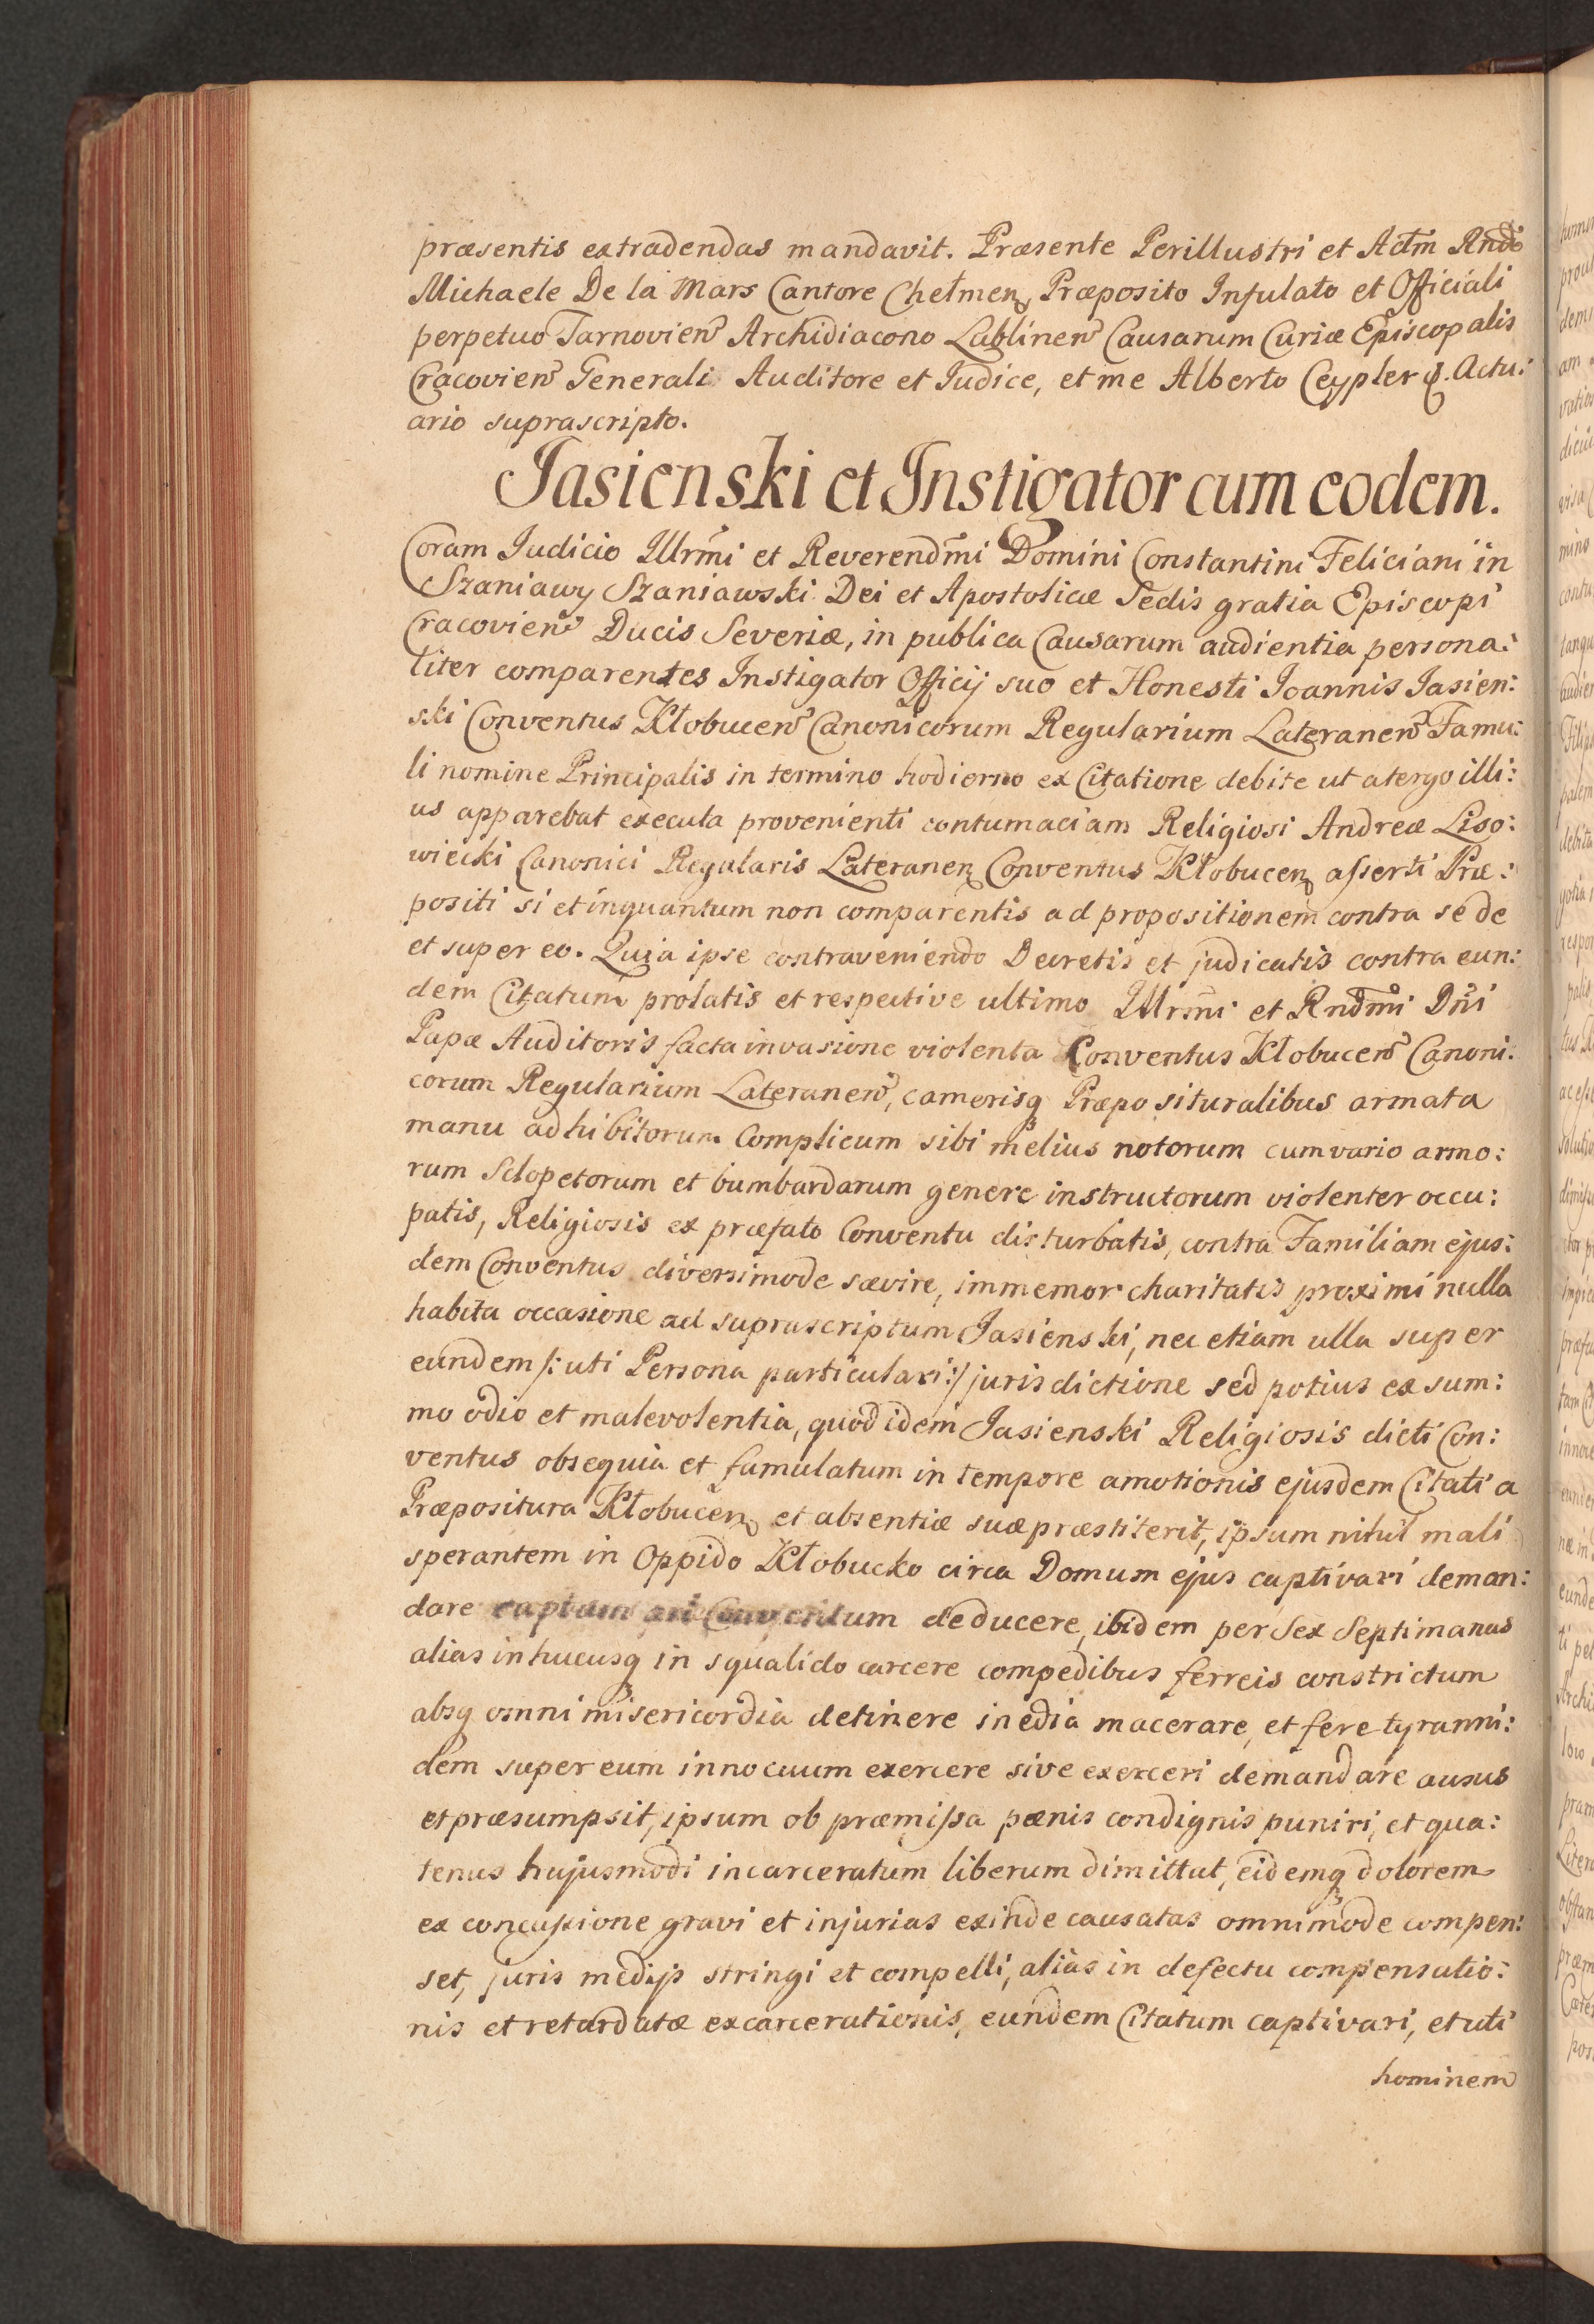 præsentis extradendas mandavit. Præsente Perillustri et Actm̃ Rndo
Michaele De la Mars Cantore Chełmen, Præposito Infulato et Officiali
perpetuo Tarnovien Archidiacono Lublinen Causarum Curiæ Episcopalis
Cracovien Generali Auditore et Iudice, et me Alberto Ceypler q. Actu:
ario suprascripto.
Jasienski et Instigator cum eodem.
Coram Iudicio Illrm̃i et Reverendm̃i Domini Constantini Feliciani in
Szaniawy Szaniawski Dei et Apostolicæ Sedis gratia Episcopi
Cracovien Ducis Severiæ, in publica Causarum audientia persona:
liter comparentes Instigator Officij suo et Honesti Ioannis Jasien:
ski Conventus Kłobucen Canonicorum Regularium Lateranen Famu:
li nomine Principalis in termino hodierno ex Citatione debite ut atergo illi:
us apparebat executa provenienti contumaciam Religiosi Andreæ Liso:
wiecki Canonici Regularis Lateranen Conventus Kłobucen asserti Præ:
positi si et inquantum non comparentis ad propositionem contra se de
et super eo. Quia ipse contraveniendo Decretis et judicatis contra eun:
dem Citatum prolatis et respective ultimo Illrm̃i et Rndm̃i Dñi
Papæ Auditoris facta invasione violenta Conventus Kłobucen Canoni:
corum Regularium Lateranen, camerisq Præposituralibus armata
manu adhibitorum Complicum sibi melius notorum cum vario armo:
rum Sclopetorum et bumbardarum genere instructorum violenter occu:
patis, Religiosis ex præfato Conventu disturbatis, contra Familiam ejus:
dem Conventus diversimode sævire, immemor charitatis proximi nulla
habita occasione ad suprascriptum Jasienski, nec etiam ulla super
eundem /: uti Persona particulari :/ jurisdictione sed potius ex sum:
mo odio et malevolentia, quod idem Jasienski Religiosis dicti Con:
ventus obsequia et famulatum in tempore amotionis ejusdem Citati a
Præpositura Kłobucen, et absentiæ suæ præstiterit, ipsum nihil mali
sperantem in Oppido Kłobucko circa Domum ejus captivari deman:
dare captum ad Conventum deducere, ibidem per Sex Septimanas
alias in hucusq in squalido carcere compedibus ferreis constrictum
absq omni misericordia detinere inedia macerare, et fere tyranni:
dem super eum innocuum exercere sive exerceri demandare ausus
et præsumpsit, ipsum ob præmissa pænis condignis puniri, et qua:
tenus hujusmodi incarceratum liberum dimittat, eidemq dolorem
ex concussione gravi et injurias exinde causatas omnimode compen:
set, juris medijs stringi et compelli, alias in defectu compensatio:
nis et retardatæ excarcerationis, eundem Citatum captivari, et uti
hominem